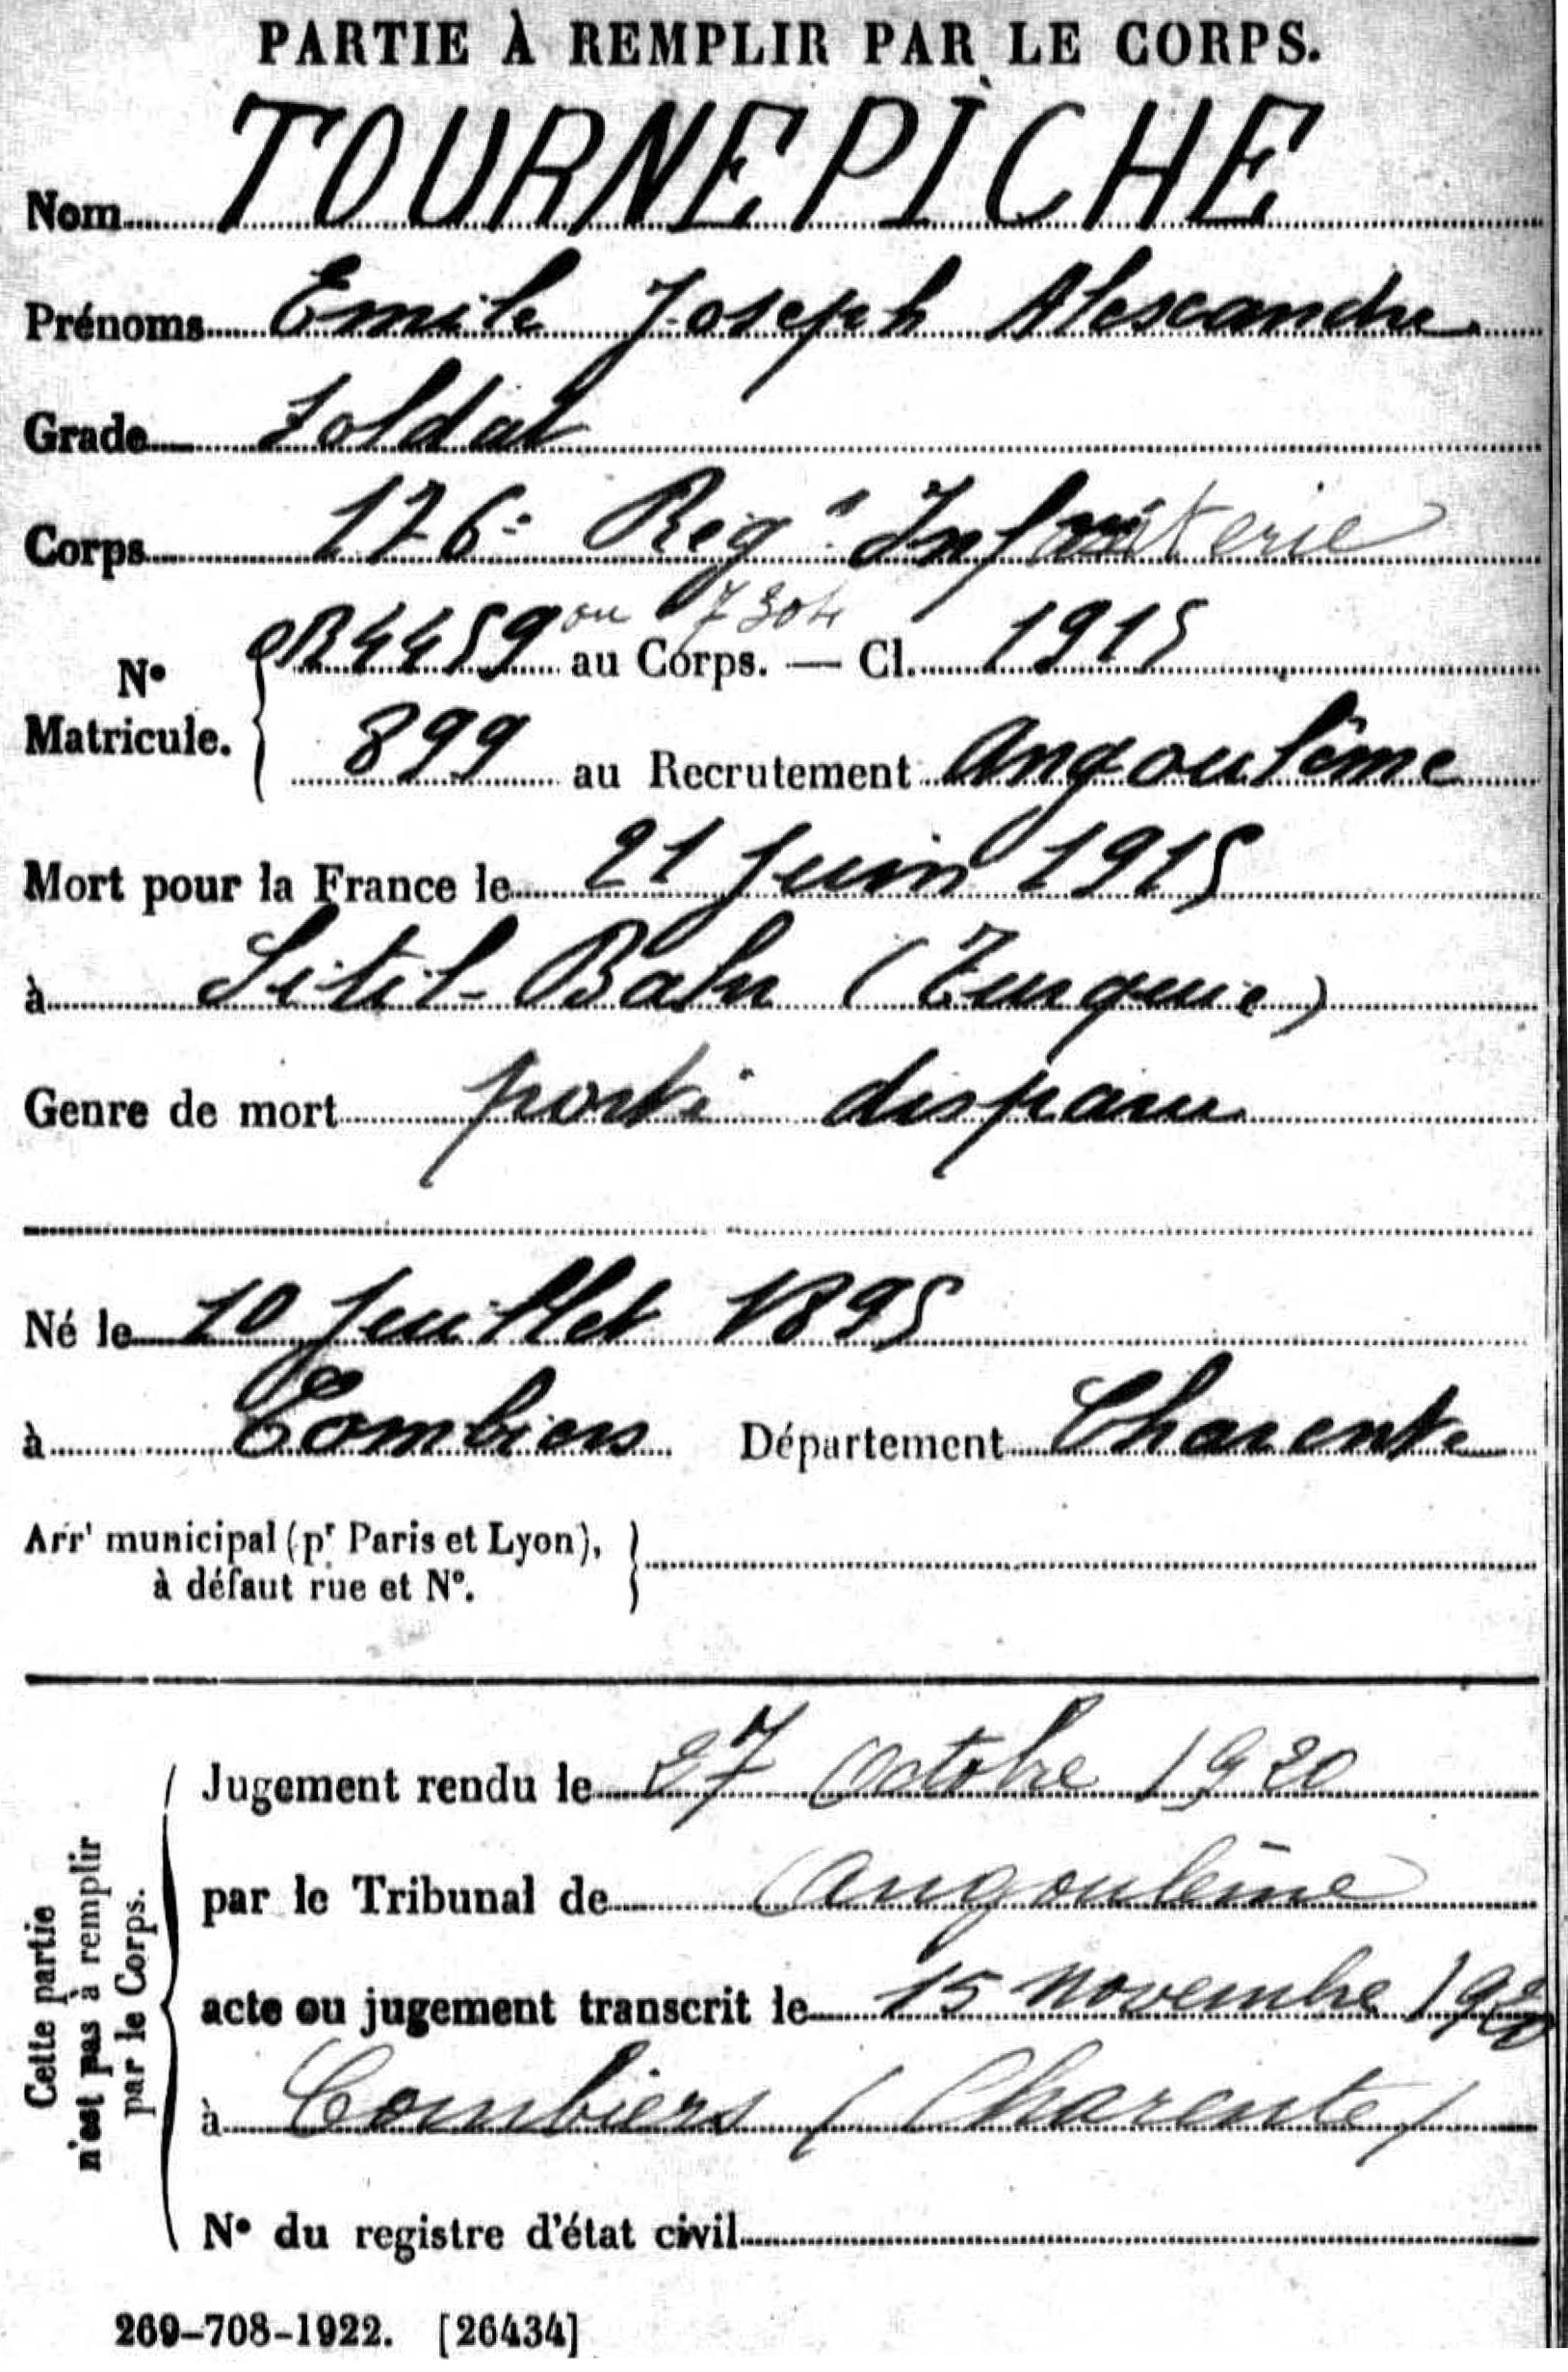 PARTIE À REMPLIR PAR LE CORPS.
Nom TOURNEPICHE
Prénoms Emile Joseph Alexandre
Grade Soldat
Corps 176e Reg t Infanterie
ou 7304
N° Matricule. 4459 au Corps. — Cl. 1915
899 au Recrutement Angoulême
Mort pour la France le 21 Juin 1915
à Sitil-Bahr (Turquie)
Genre de mort porté disparu
Né le 10 Juillet 1895
à Combiers Département Charente
Arrt municipal (pr Paris et Lyon),
à défaut rue et N°.
Cette partie
n'est pas à remplir
par le Corps.
Jugement rendu le 27 Octobre 1920
par le Tribunal de Angoulême
acte ou jugement transcrit le 15 Novembre 1920
à Combiers (Charente)
N° du registre d'état civil
269-708-1922. [26434]